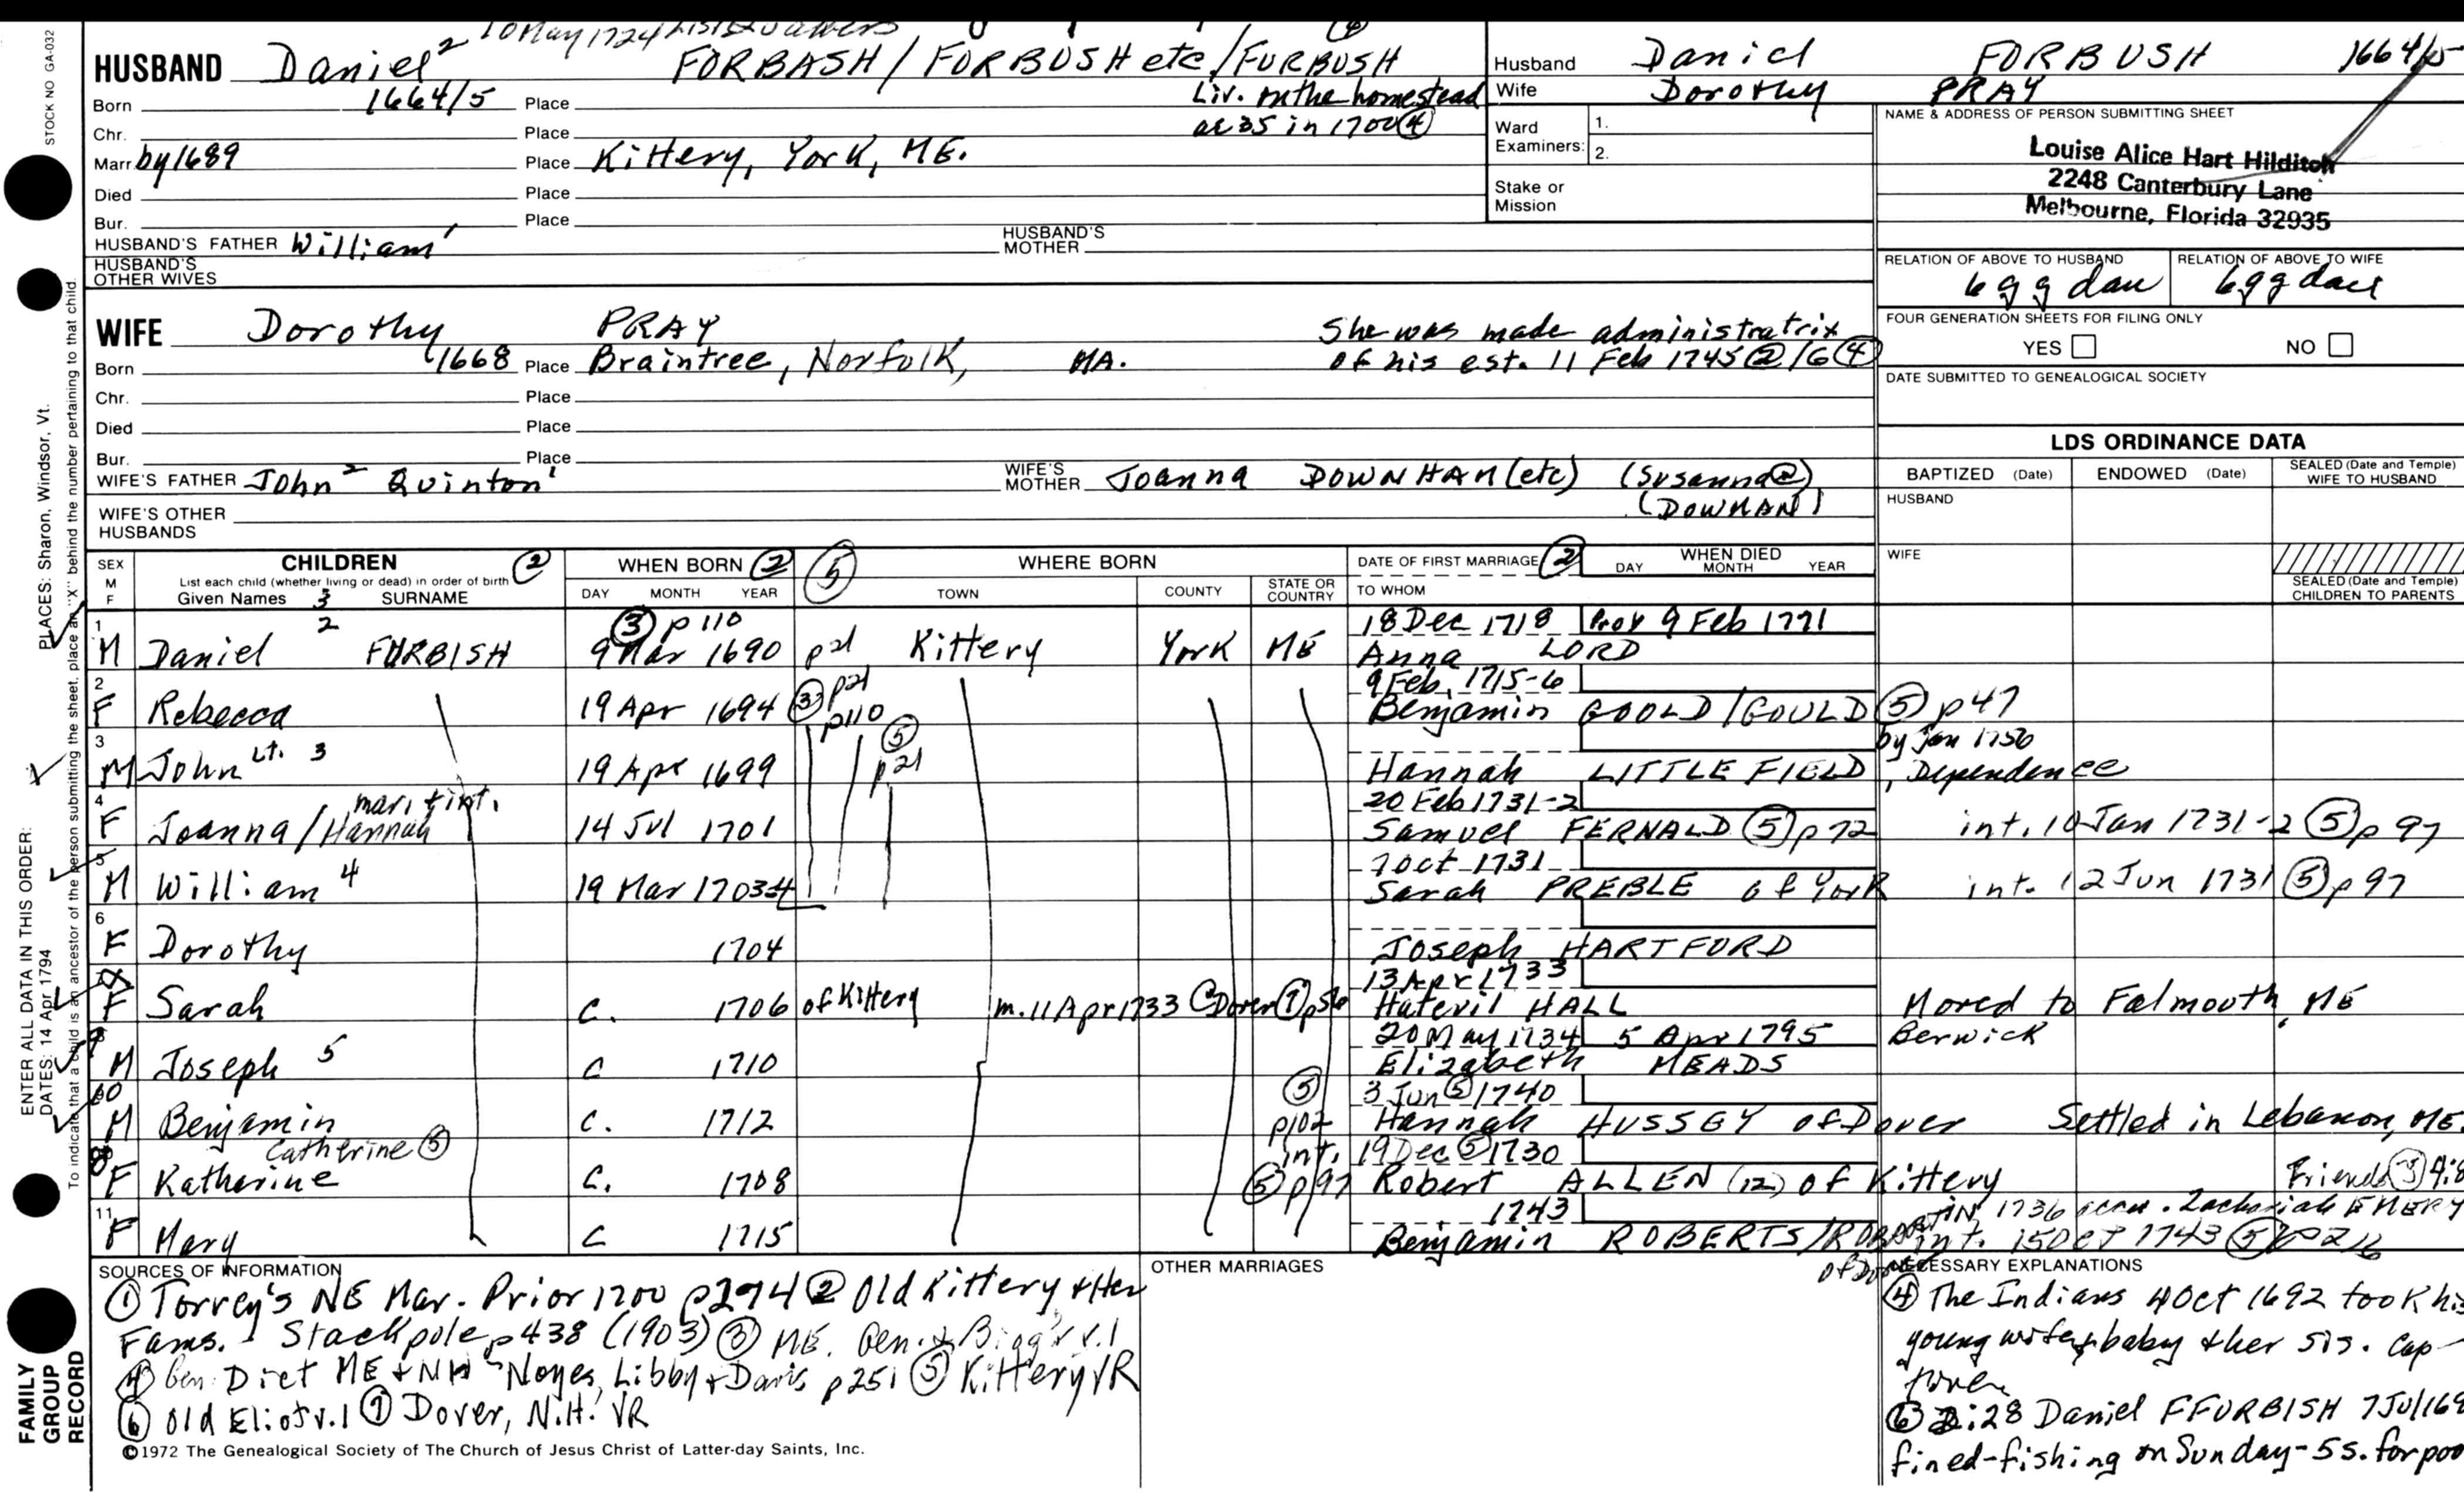 10 May 1724 List Quakers
HUSBAND Daniel 2 FORBASH / FORBUSH etc / FURBUSH
Born 1664/5 Place Liv. on the homestead
Chr. Place ae 35 in 1700 (4)
Marr by 1689 Place Kittery, York, ME.
Died Place
Bur. Place
HUSBAND'S FATHER William 1 HUSBAND'S MOTHER
HUSBAND'S OTHER WIVES
WIFE Dorothy PRAY She was made administratrix
Born 1668 Place Braintree, Norfolk, MA. of his est. 11 Feb 1745 (2) /6 (4)
Chr. Place
Died Place
Bur. Place
WIFE'S FATHER John 2 Quinton 1 WIFE'S MOTHER Joanna DOWNHAM (etc) (Susanna (2))
(DOWNAN)
WIFE'S OTHER HUSBANDS
Husband Daniel FORBUSH 1664/5
Wife Dorothy PRAY
Ward Examiners: 1.
2.
Stake or Mission
NAME & ADDRESS OF PERSON SUBMITTING SHEET
Louise Alice Hart Hilditch
2248 Canterbury Lane
Melbourne, Florida 32935
RELATION OF ABOVE TO HUSBAND RELATION OF ABOVE TO WIFE
6 g g dau 6 g g dau
FOUR GENERATION SHEETS FOR FILING ONLY
YES NO
DATE SUBMITTED TO GENEALOGICAL SOCIETY
LDS ORDINANCE DATA
BAPTIZED (Date) ENDOWED (Date) SEALED (Date and Temple) WIFE TO HUSBAND
HUSBAND
WIFE
SEALED (Date and Temple) CHILDREN TO PARENTS
SEX M F CHILDREN (2) WHEN BORN (2) (5) WHERE BORN DATE OF FIRST MARRIAGE (2) WHEN DIED
List each child (whether living or dead) in order of birth
Given Names 3 SURNAME DAY MONTH YEAR TOWN COUNTY STATE OR COUNTRY TO WHOM DAY MONTH YEAR
1 2 (3) p 110 18 Dec 1718 Prov 9 Feb 1771
M Daniel FURBISH 9 Mar 1690 p21 Kittery York ME Anna LORD
2 (3) p21 9 Feb. 1715-6
F Rebecca 19 Apr 1694 p110 Benjamin GOOLD / GOULD (5) p47
3 Lt. 3 (5) by Jan 1750
M John 19 Apr 1699 p21 Hannah LITTLEFIELD, Dependence
4 mar. + int. 20 Feb 1731-2
F Joanna / Hannah 14 Jul 1701 Samuel FERNALD (5) p 72 int. 10 Jan 1731-2 (5) p 97
5 4 7 Oct 1731
M William 19 Mar 1703-4 Sarah PREBLE of York int. 12 Jun 1731 (5) p 97
6
F Dorothy 1704 Joseph HARTFORD
13 Apr 1733
F Sarah C. 1706 of Kittery m. 11 Apr 1733 Dover (7) p56 Hatevil HALL Moved to Falmouth, ME
20 May 1734 5 Apr 1795 Berwick
M Joseph 5 C 1710 Elizabeth MEADS
10 (5) 3 Jun (5) 1740
M Benjamin C. 1712 p102 Hannah HUSSEY of Dover Settled in Lebanon, ME.
Catherine (5) int. 19 Dec (5) 1730
F Katherine C. 1708 (5) p 97 Robert ALLEN (12) of Kittery Friends (3) 4:8
11 1743 1736 Zachariah EMERY
F Mary C 1715 Benjamin ROBERTS / int. 15 Oct 1743 (5)
SOURCES OF INFORMATION
(1) Torrey's NE Mar. Prior 1700 p274 (2) Old Kittery + Her
Fams. - Stackpole p 438 (1903) (3) ME. Gen. + Biog'r v.1
(4) Gen. Dict ME + NH Noyes, Libby + Davis p 251 (5) Kittery VR
(6) Old Eliot v.1 (7) Dover, N.H. VR
OTHER MARRIAGES
NECESSARY EXPLANATIONS
(4) The Indians 4 Oct 1692 took his
young wife + baby + her sis. Cap-
(6) 2:28 Daniel FFURBISH 7 Jul 169
fined-fishing on Sunday-5s. for poo
©1972 The Genealogical Society of The Church of Jesus Christ of Latter-day Saints, Inc.
STOCK NO GA-032
PLACES: Sharon, Windsor, Vt.
ENTER ALL DATA IN THIS ORDER:
DATES: 14 Apr 1794
To indicate that a child is an ancestor of the person submitting the sheet, place an "X" behind the number pertaining to that child.
FAMILY GROUP RECORD